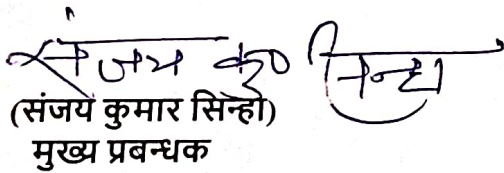 संजय कु० सिन्हा
(संजय कुमार सिन्हा)
मुख्य प्रबन्धक